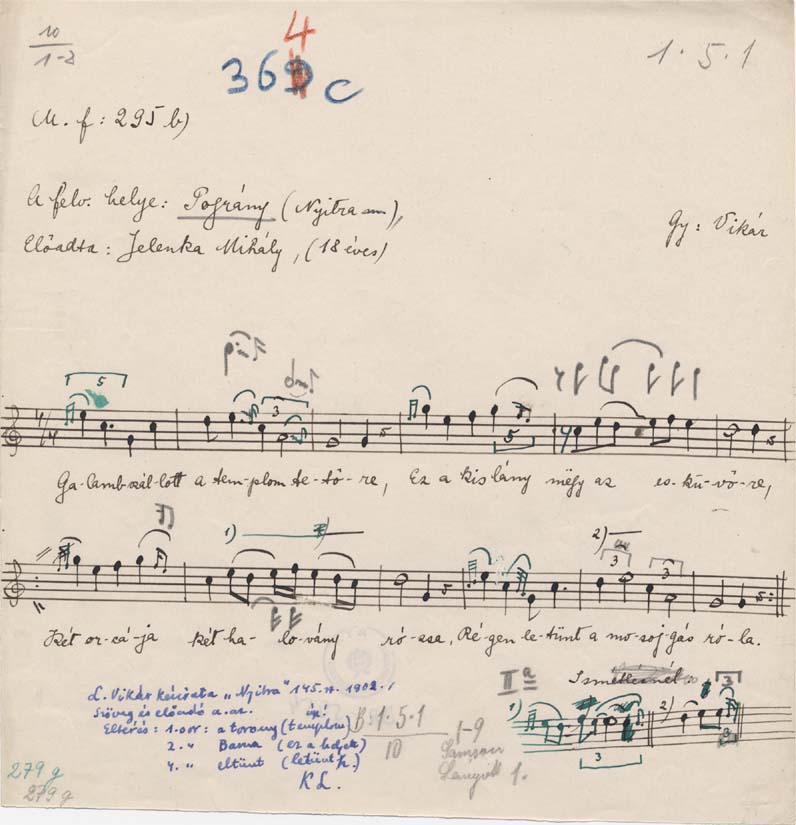 10
1-2
4
369 c
1·5·1
M. f: 295 b)
A felv. helye: Pográny (Nyitra m),
Gy: Vikár
Előadta: Jelenka Mihály, (18 éves)
5
3
4/4
5
Ga-lamb szál-lott a tem-plom te-tő-re, Ez a kis lány mëgy az es-kü-vő-re,
1)
2)
3
3
Két or-cá-ja két ha-lo-vány ró-zsa, Ré-gen le-tünt a mo-soj-gás ró-la.
L. Vikár kézirata „Nyitra" 145.
Szöveg és előadó u.az.
Eltérés: 1. sor: a torony (templom)
2. „ Barna (ez a helyett)
4. „ eltünt (letünt h.)
K L.
B: 1·5·1
10
1-9
II a
1)
2)
3
3
279 g
279 g